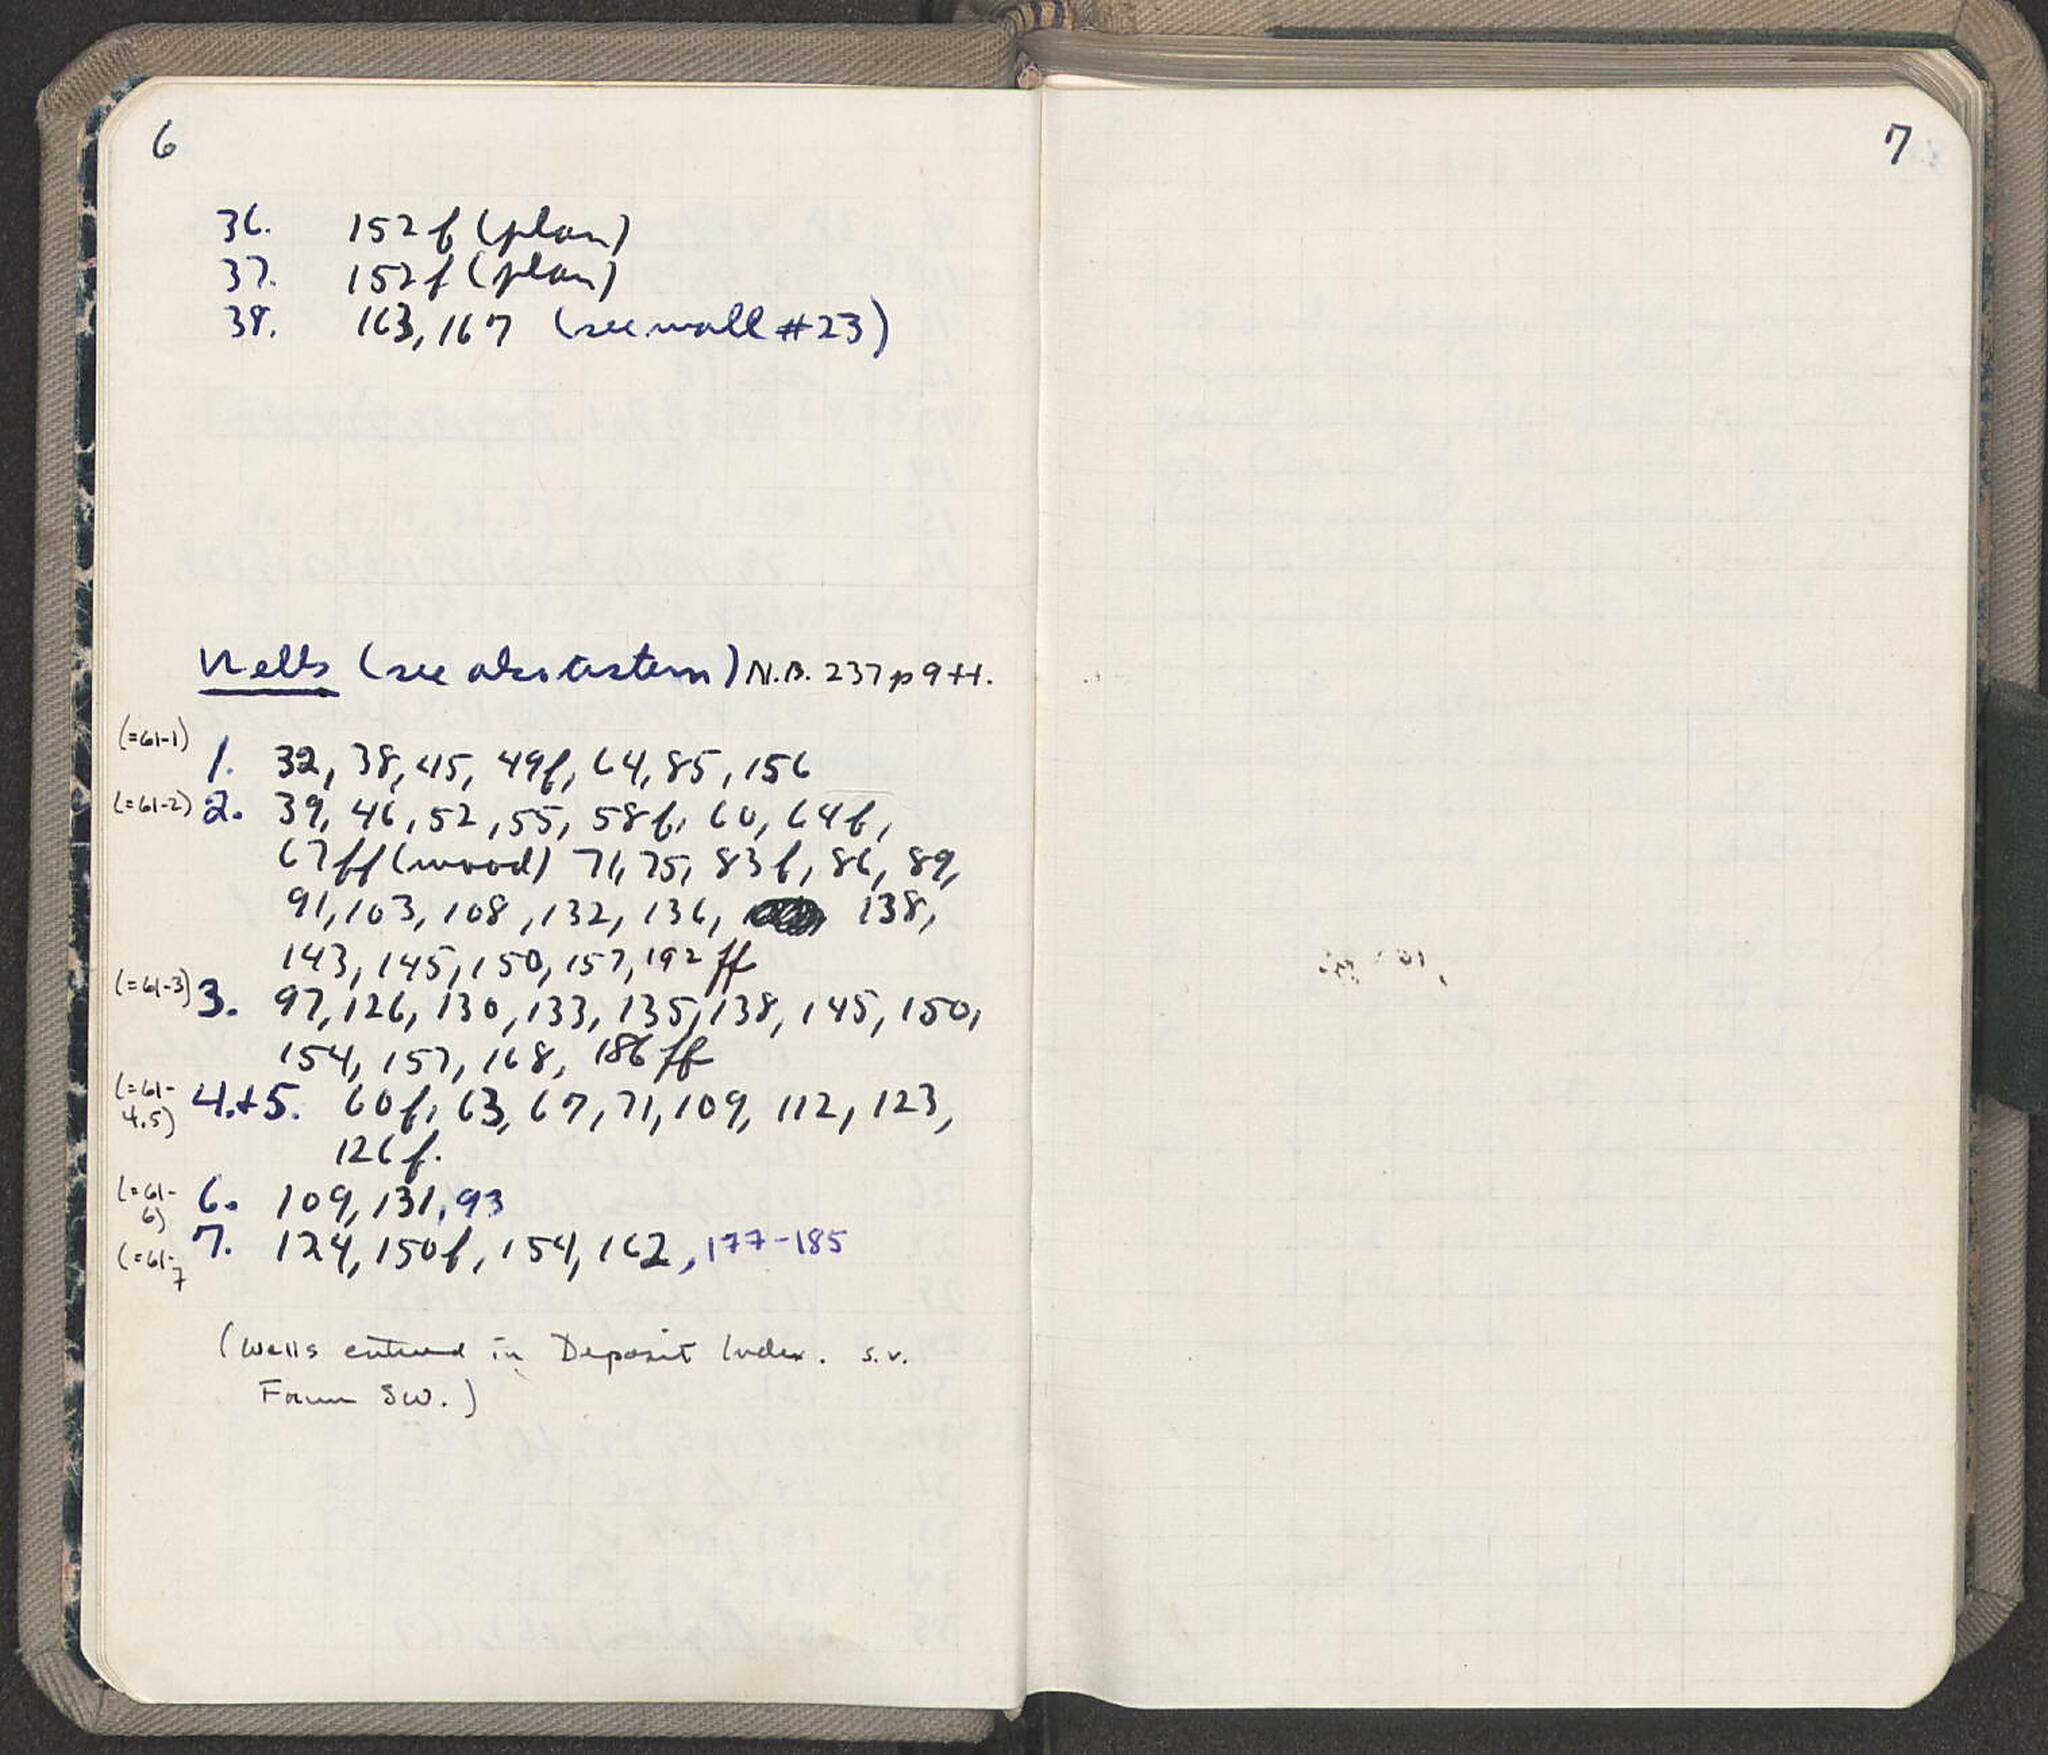 6
36. 152 f (plan)
37. 152 f (plan)
38. 163, 167 (see wall #23)
Wells (see also cistern) N.B. 237 p 9 ff.
(=61-1) 1. 32, 38, 45, 49f, 64, 85, 156
(=61-2) 2. 39, 46, 52, 55, 58f, 60, 64f,
67ff (wood) 71, 75, 83f, 86, 89,
91, 103, 108, 132, 136, 138,
143, 145, 150, 157, 192 ff
(=61-3) 3. 97, 126, 130, 133, 135, 138, 145, 150,
154, 157, 168, 186 ff
(=61-4.5) 4.+5. 60f, 63, 67, 71, 109, 112, 123,
126f.
(=61-6) 6. 109, 131, 93
(=61-7 7. 124, 150f, 154, 162, 177-185
(Wells entered in Deposit Index. s.v.
Forum SW.)
7